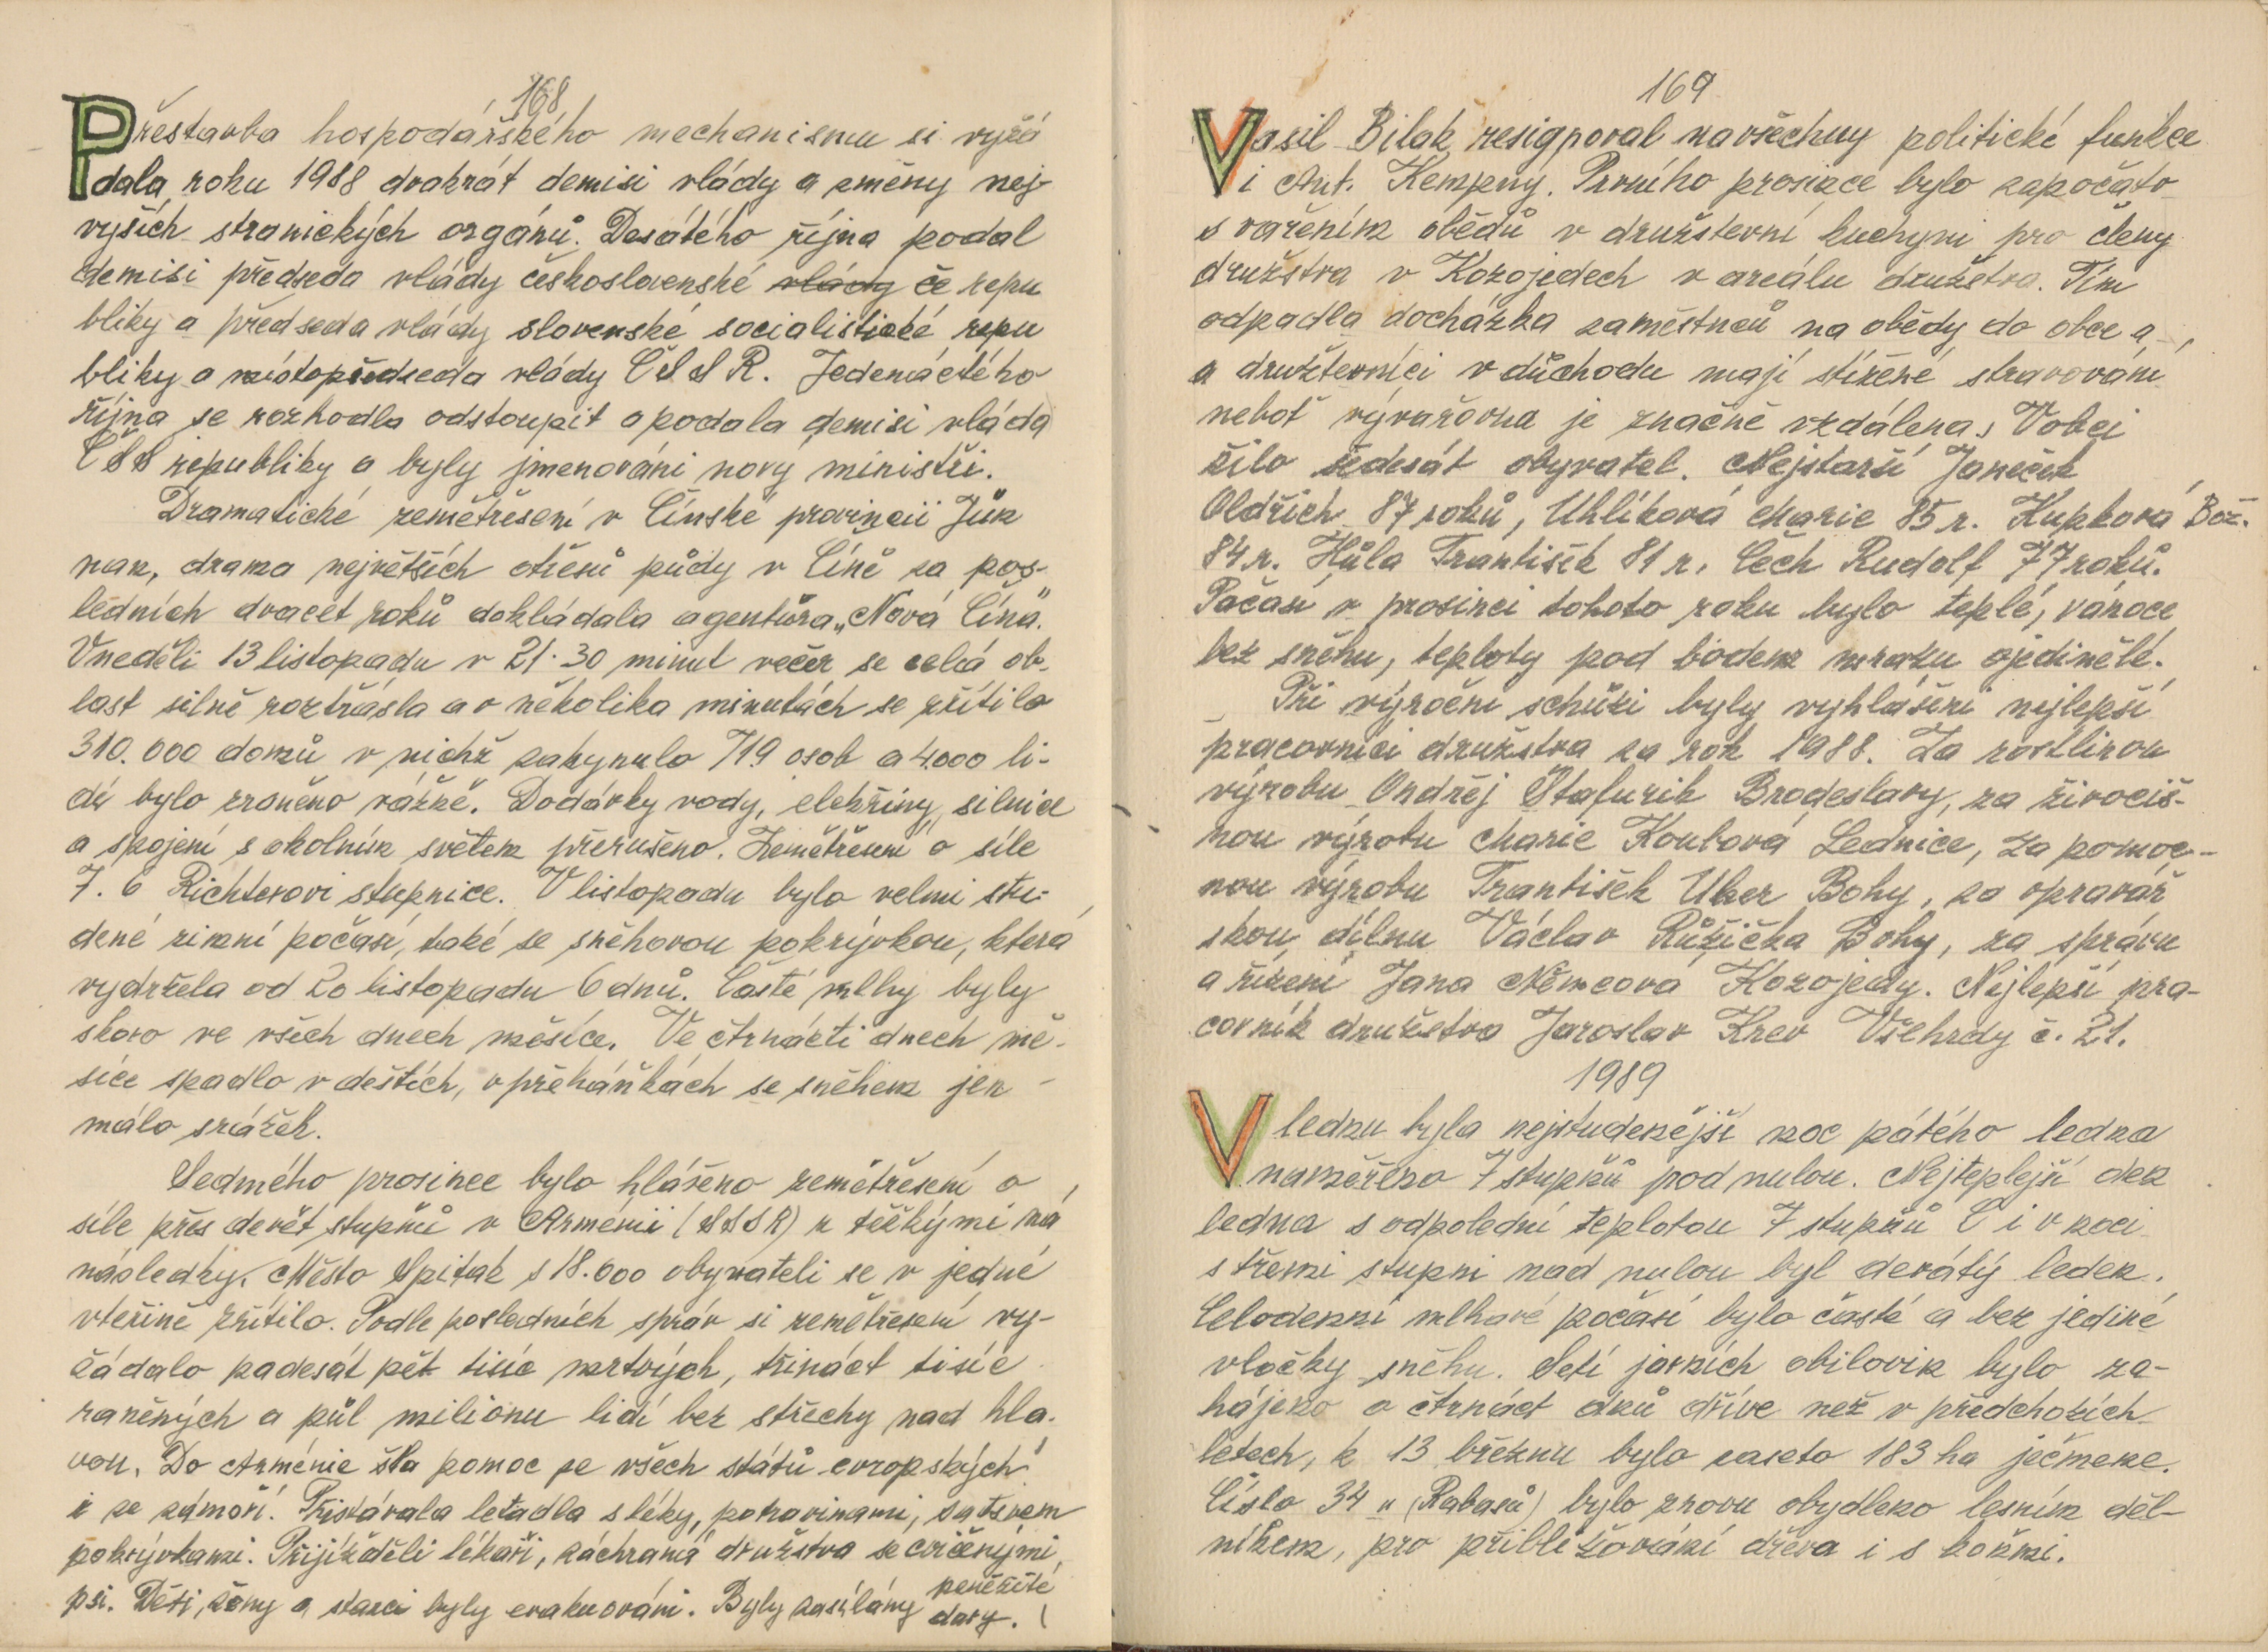 168
Přestavba hospodářského mechanismu si vyžá
dala, roku 1988 dvakrát demisi vlády a změny nej-
vyšších stranických orgánů. Desátého října podal
demisi předseda vlády československé vlády če repu
bliky a předseda vlády slovenské socialistické repu
bliky a místopředseda vlády ČSSR. Jedenáctého
října se rozhodla odstoupit a podala demisi vláda
ČSS republiky a byly jmenováni nový ministři.
Dramatické zemětřesení v Čínské provincii Jün
nan, drama největších otřesů půdy v Číně za pos-
ledních dvacet roků dokládala agentůra „Nová Čína".
V neděli 13 listopadu v 21.30 minut večer se celá ob-
last silně roztřásla a v několika minutách se zřítilo
310.000 domů v nichž zahynulo 719 osob a 4.000 li-
dí bylo zraněno vážně. Dodávky vody, elektřiny, silnice
a spojení s okolním světem přerušeno. Zemětřesení o síle
7.6 Richterovi stupnice. V listopadu bylo velmi stu-
dené zimní počasí, také se sněhovou pokrývkou, která
vydržela od 20 listopadu 6 dnů. Časté mlhy byly
skoro ve všech dnech měsíce. Ve čtrnácti dnech mě-
síce spadlo v deštích, v přeháňkách se sněhem jen
málo srážek.
Sedmého prosince bylo hlášeno zemětřesení o
síle přes devět stupňů v Arménii (SSSR) z těžkými ná
následky. Město Spitak s 18.000 obyvateli se v jedné
vteřině zřítilo. Podle posledních správ si zemětřesení vy-
žádalo padesát pět tisíc mrtvých, třináct tisíc
raněných a půl milionu lidí bez střechy nad hla-
vou. Do Arménie šla pomoc ze všech států evropských
i ze zámoří. Přistávala letadla s léky, potravinami, šatsvem
pokrývkami. Přijížděli lékaři, záchraná družstva se cvičenými
psi. Děti, ženy a starci byly evakuováni. Byly zasílány peněžité
dary.
169
Vasil Bilak resignoval na všechny politické funkce
i Ant. Kempný. Prvního prosince bylo započato
s vařením obědů v družstevní kuchyni pro členy
družstva v Kozojedech v areálu družstva. Tím
odpadla docházka zaměstnců na obědy do obce a
a družstevníci v důchodu mají stížené stravování
neboť vývařovna je značně vzdálena. V obci
žilo šedesát obyvatel. Nejstarší Janeček
Oldřich 87 roků, Uhlíková Marie 85 r. Kupková Bož.
84 r. Hůla František 81 r. Čech Rudolf 77 roků.
Počasí v prosinci tohoto roku bylo teplé, vánoce
bez sněhu, teploty pod bodem mrazu ojedinělé.
Při výroční schůzi byly vyhlášeni nejlepší
pracovníci družstva za rok 1988. Za rostlinou
výrobu Ondřej Štafurik Brodeslavy, za živočiš-
nou výrobu Marie Koubová Lednice, za pomoc-
nou výrobu František Uher Bohy, za opravář
skou dílnu Václav Růžička Bohy, za správu
a řízení Jana Němcová Kozojedy. Nejlepší pra-
covník družstva Jaroslav Křev Všehrdy č. 21.
1989
V lednu byla nejstudenější noc pátého ledna
naměřeno 7 stupňů pod nulou. Nejteplejší den
ledna s odpolední teplotou 7 stupňů C i v noci
s třemi stupni nad nulou byl devátý leden.
Celodenní mlhavé počasí bylo časté a bez jediné
vločky sněhu. Setí jarních obilovin bylo za-
hájeno o čtrnáct dnů dříve než v předchozích
letech, k 13 březnu bylo zaseto 183 ha ječmene.
Číslo 34 u (Rabasů) bylo znovu obydleno lesním děl-
níkem, pro přibližování dřeva i s koňmi.